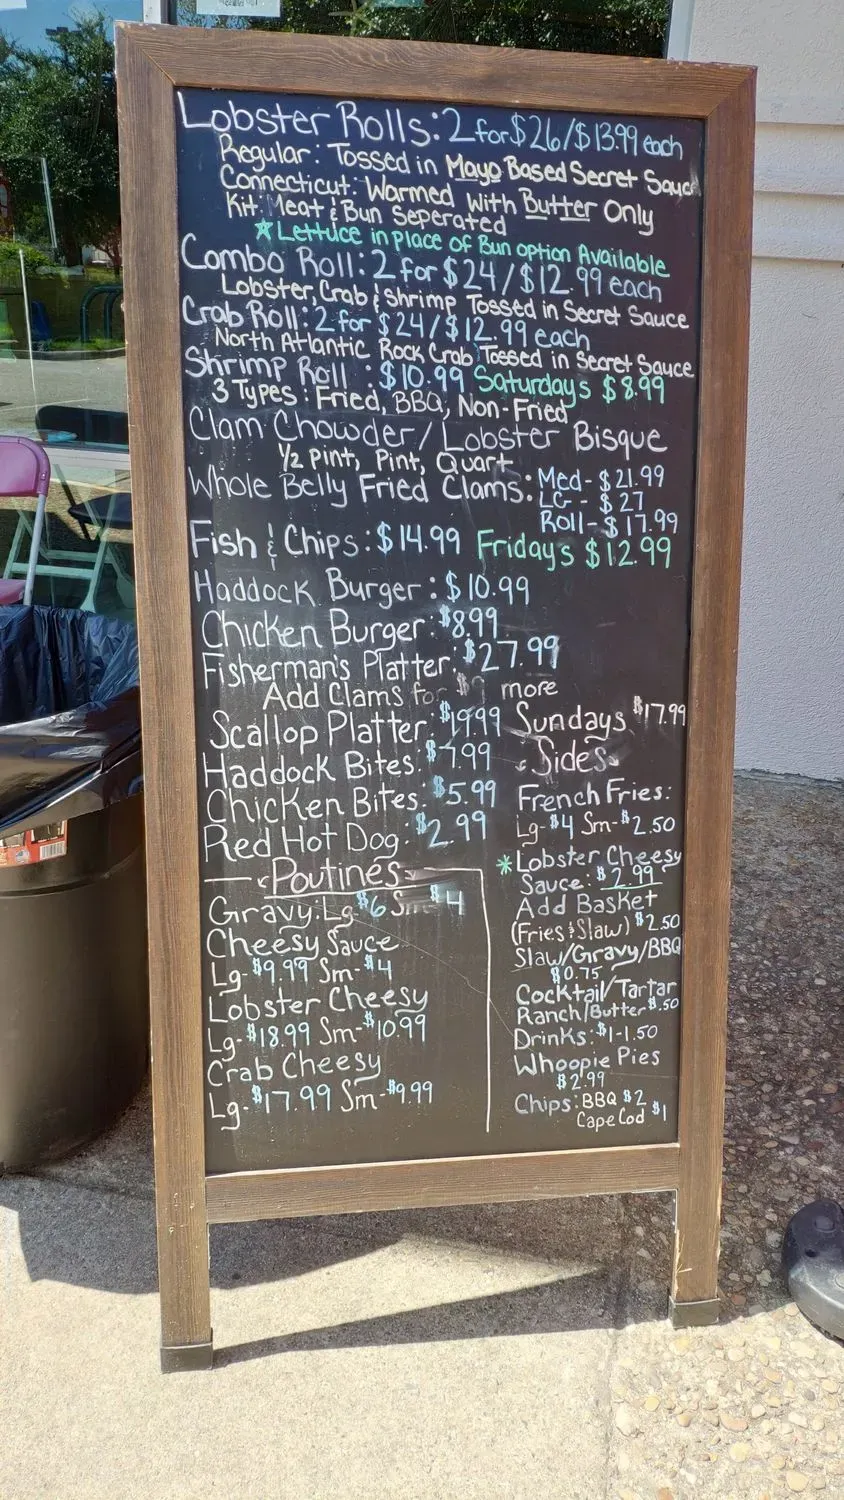 Lobster Rolls: 2 for $26/$13.99 each
Regular: Tossed in Mayo Based Secret Sauce
Connecticut: Warmed With Butter Only
Kit: Meat & Bun Seperated
*Lettuce in place of Bun option Available
Combo Roll: 2 for $24/$12.99 each
Lobster, Crab & Shrimp Tossed in Secret Sauce
Crab Roll: 2 for $24/$12.99 each
North Atlantic Rock Crab Tossed in Secret Sauce
Shrimp Roll: $10.99 Saturdays $8.99
3 Types: Fried, BBQ, Non-Fried
Clam Chowder/Lobster Bisque
1/2 Pint, Pint, Quart
Whole Belly Fried Clams: Med- $21.99
LG- $27
Roll- $17.99
Fish & Chips: $14.99 Friday's $12.99
Haddock Burger: $10.99
Chicken Burger: $8.99
Fisherman's Platter: $27.99
Add Clams for more
Scallop Platter: $19.99 Sundays $17.99
Haddock Bites: $7.99
Chicken Bites: $5.99
Red Hot Dog: $2.99
Poutines
Gravy: Lg $6 Sm- $4
Cheesy Sauce
Lg- $9.99 Sm- $4
Lobster Cheesy
Lg- $18.99 Sm- $10.99
Crab Cheesy
Lg- $17.99 Sm- $9.99
Sides
French Fries:
Lg- $4 Sm- $2.50
*Lobster Cheesy
Sauce: $2.99
Add Basket
(Fries & Slaw) $2.50
Slaw/Gravy/BBQ
$0.75
Cocktail/Tartar
Ranch/Butter $.50
Drinks: $1-1.50
Whoopie Pies
$2.99
Chips: BBQ $2
Cape Cod $1